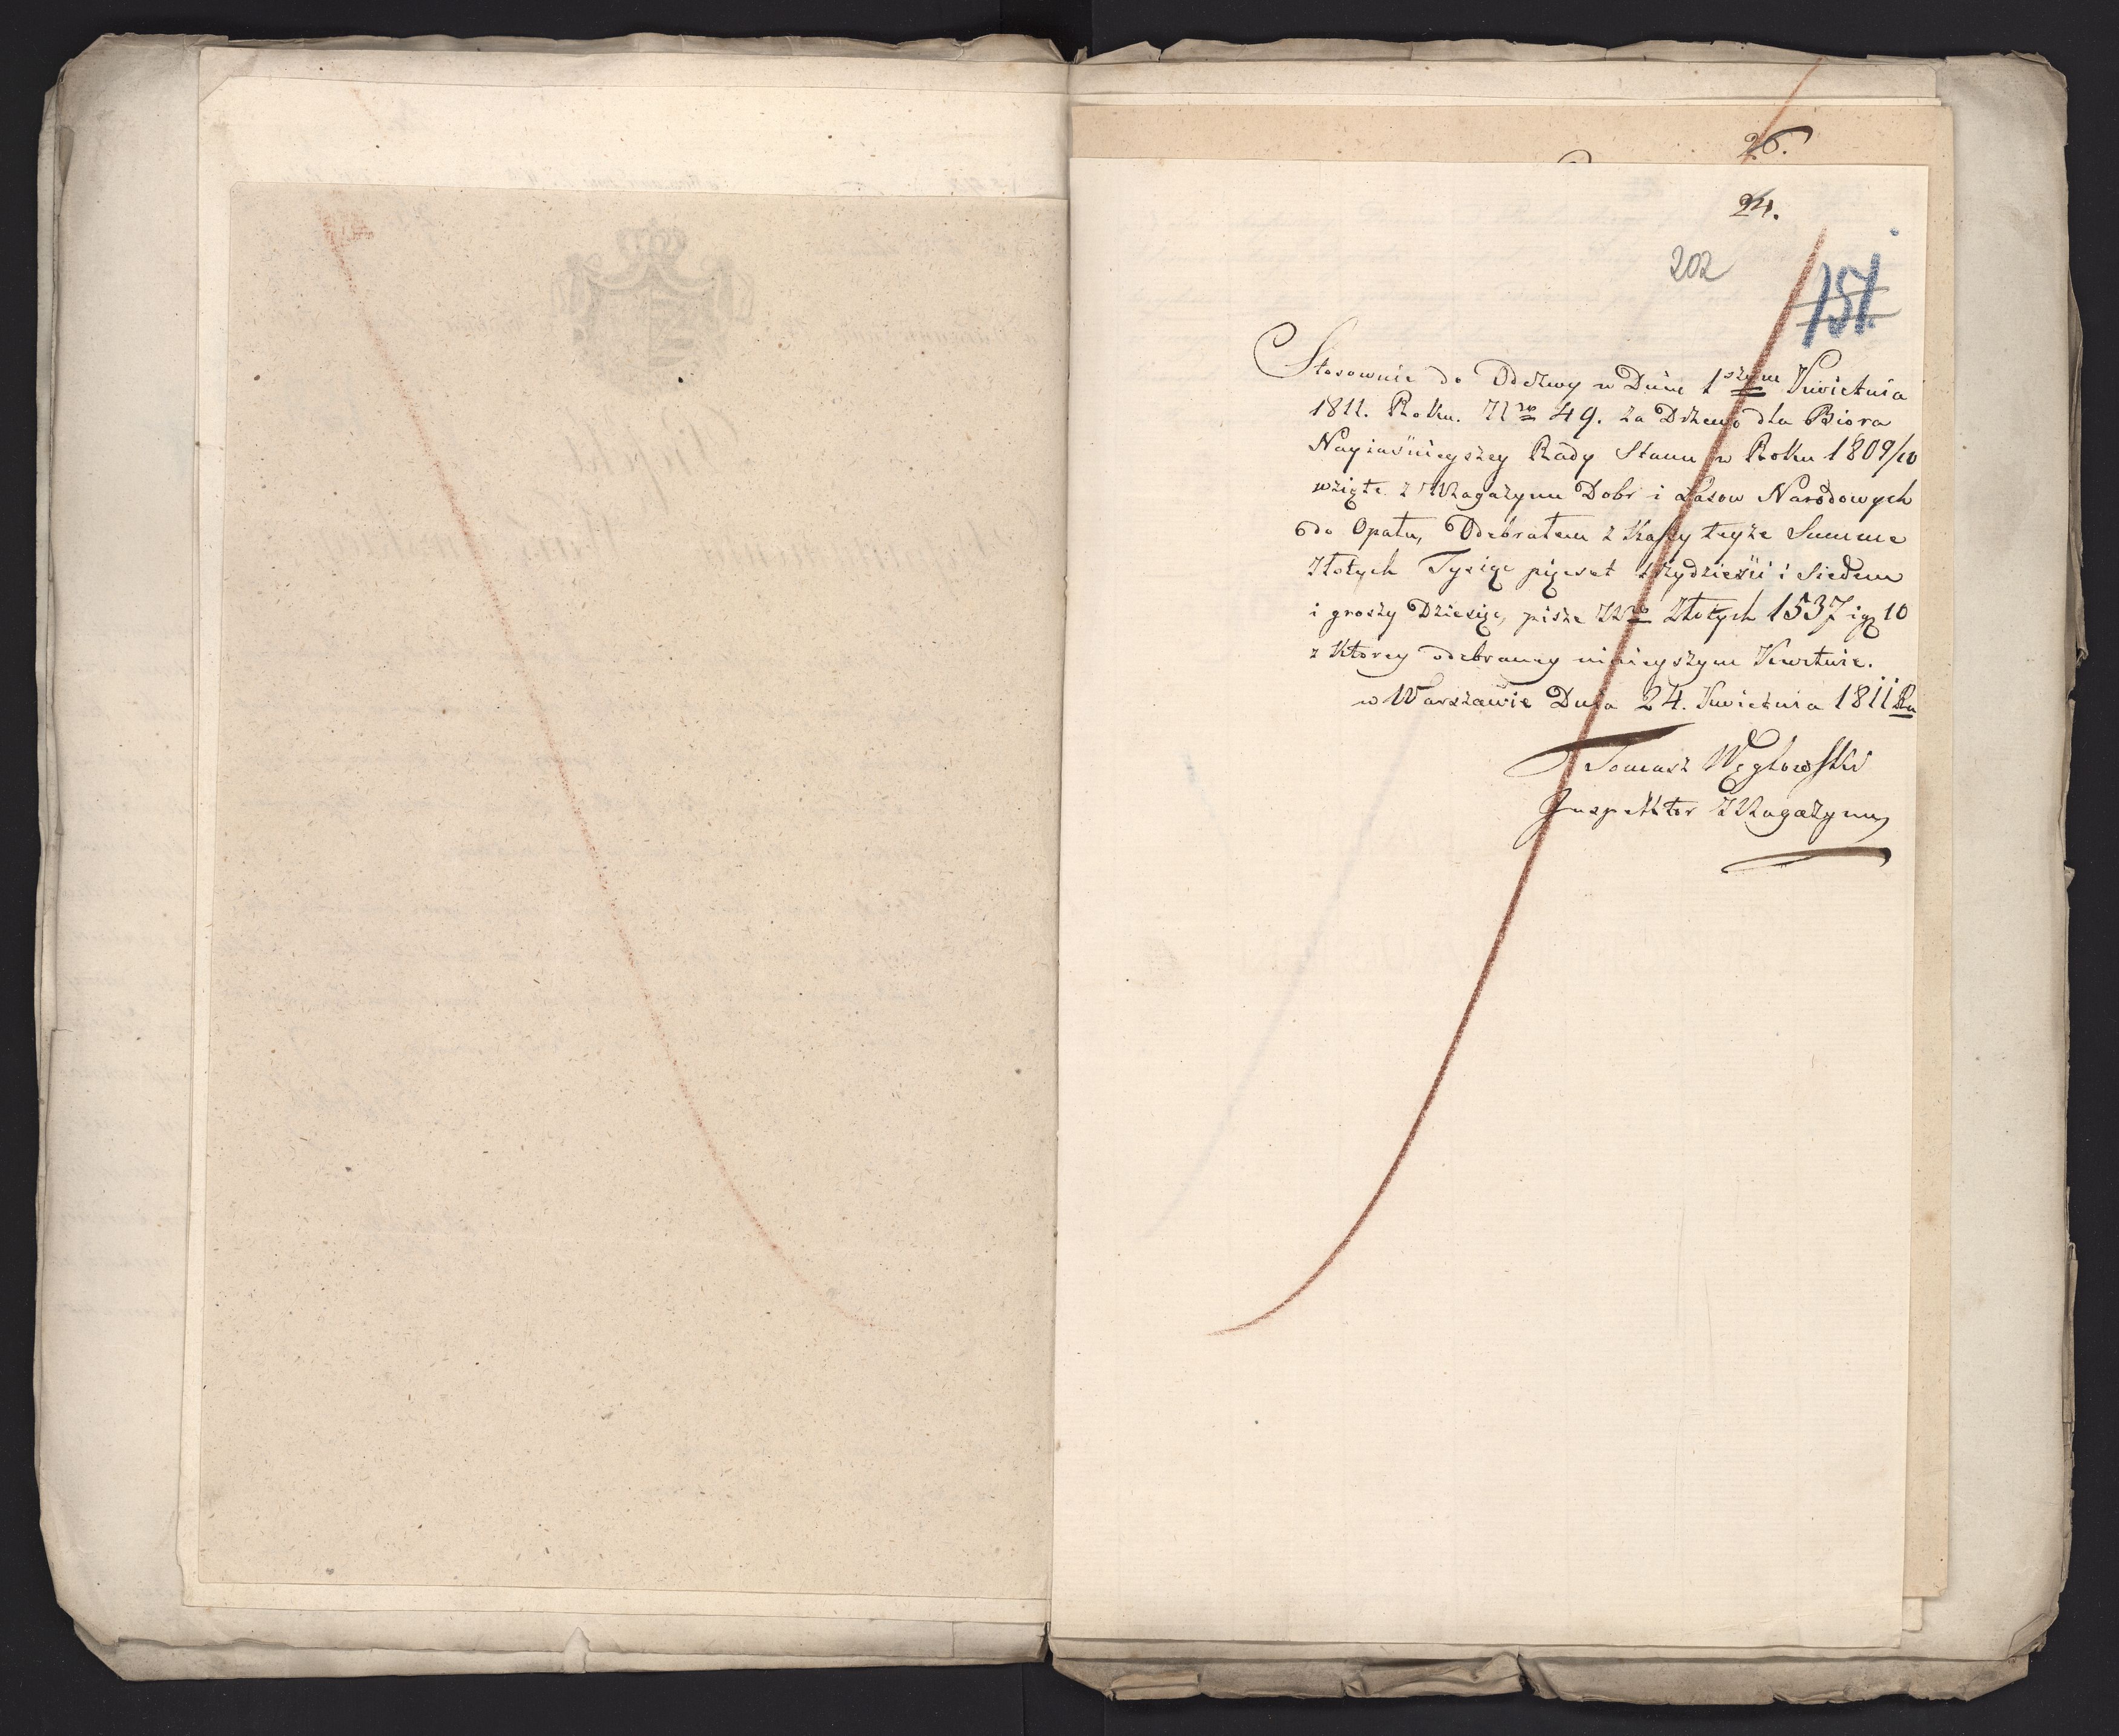 26.
24.
202
151.
Stosownie do Odezwy w Dniu 1szym Kwietnia
1811. Roku. Nro 49. za Drzewo dla Biora
Nayiaśnieyszey Rady Stanu w Roku 1809/10
wzięte z Magazynu Dobr i Lasow Narodowych
do Opału, Odebrałem z Kassy teyże Summe
Złotych Tysiąc pięcset trzydzieści i Siedem
i groszy Dziesięć, piszę Złotych 1537 i gr 10
z Ktorey odebraney ninieyszym Kwituie.
w Warszawie Dnia 24. Kwietnia 1811 Ru
Tomasz Węgłowski
Inspektor Magazynu